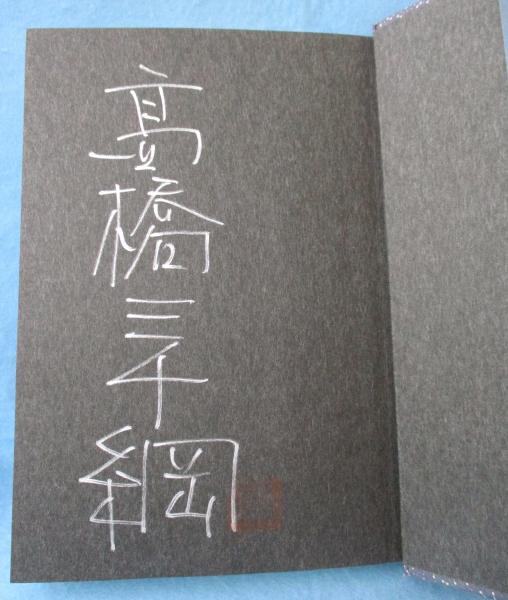 高橋三千綱